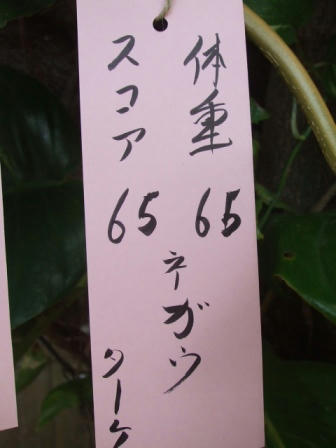 体重 65
スコア 65
ネガウ
ターケ